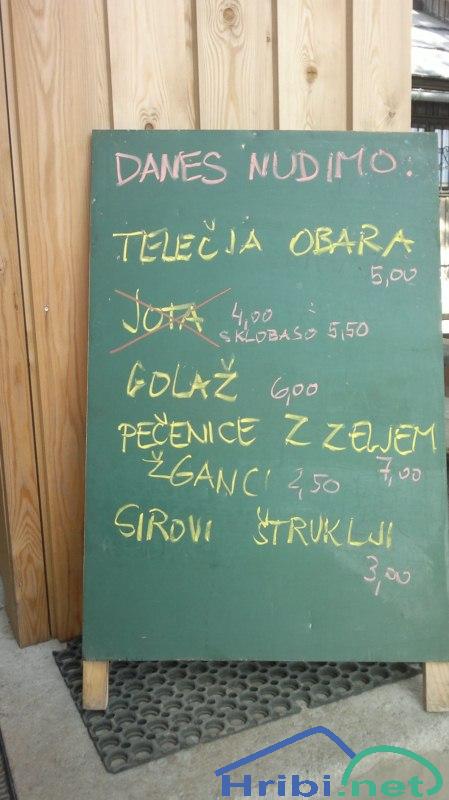 DANES NUDIMO:
TELEČJA OBARA
5,00
JOTA 4,00
S KLOBASO 5,50
GOLAŽ 6,00
PEČENICE Z ZELJEM
7,00
ŽGANCI 2,50
SIROVI ŠTRUKLJI
3,00
Hribi.net